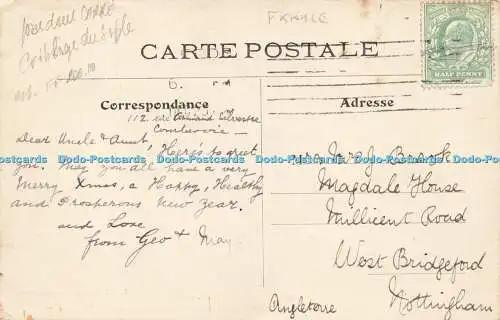 Criblage du sable
FRANCE
CARTE POSTALE
HALF PENNY
Correspondance
Adresse
112 rue Armand Silvestre
Courbevoie
Dear Uncle & Aunt, Here's to greet
you. May you all have a very
Merry Xmas, a Happy, Healthy
and Prosperous New Year.
and Love
from Geo & May.
Mr & Mrs J.
Magdale House
Millicent Road
West Bridgeford
Nottingham
Angleterre
Dodo-Postcards Dodo-Postcards Dodo-Postcards Dodo-Postcards Dodo-Postcards Dodo-Postcards